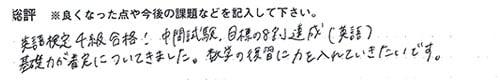 総評 ※良くなった点や今後の課題などを記入して下さい。
英語検定4級合格！中間試験、目標の8割達成(英語)
基礎力が着実についてきました。数学の復習に力を入れていきたいです。